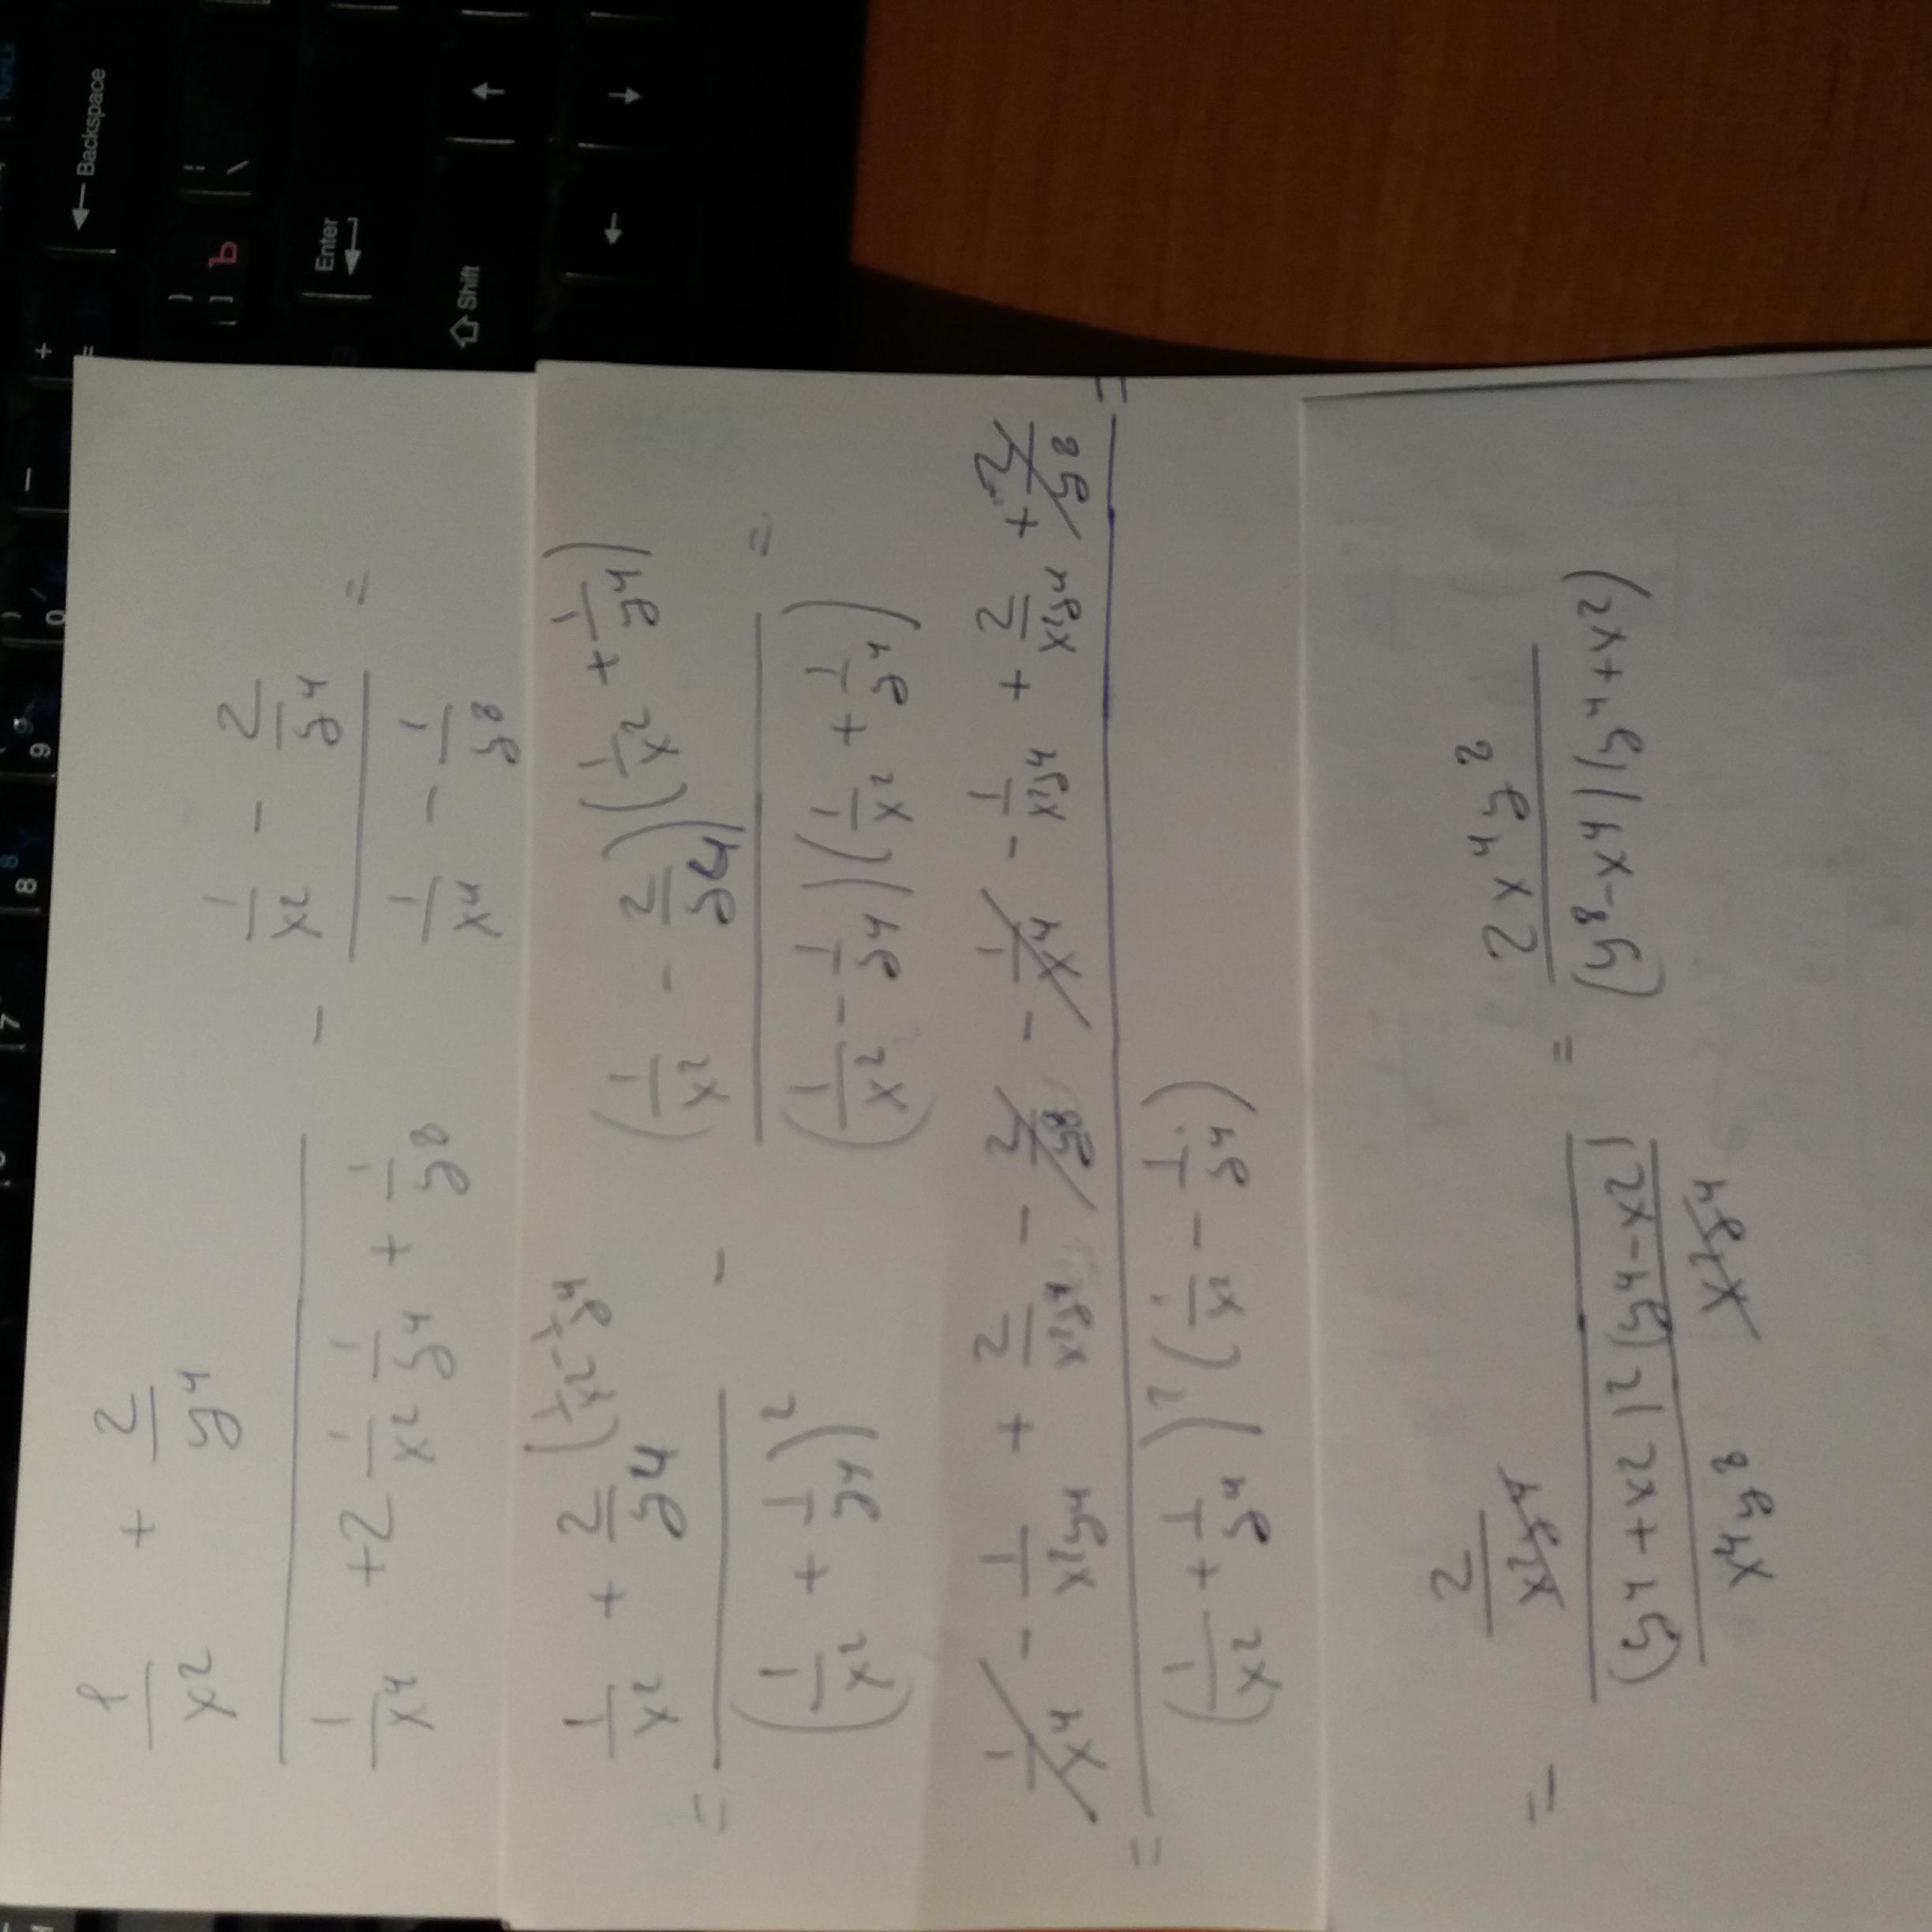 Backspace
Enter
Shift
NumLk
} ] Ъ
| \
+ =
0 9 8 7
1/x² + 2/y⁴ / 1/x⁴ + 2 1/x² 1/y⁴ + 1/y⁸ - 1/x² - 2/y⁴ / 1/x⁴ - 1/y⁸ =
= 1/x² + 2/y⁴ (1/x² - 1/y⁴ / (1/x² + 1/y⁴)² - (1/x² - 2/y⁴)(1/x² + 1/y⁴) / (1/x² - 1/y⁴)(1/x² + 1/y⁴) =
= 1/x⁴ - 1/x²y⁴ + 2/x²y⁴ - 2/y⁸ - 1/x⁴ - 1/x²y⁴ + 2/x²y⁴ + 2/y⁸ / (1/x² + 1/y⁴)² (1/x² - 1/y⁴) =
= 2/x²y⁴ / (y⁴ + x²)² (y⁴ - x²) / x⁴y⁸ x²y⁴ = 2x⁴y² / (y⁸ - x⁴)(y⁴ + x²)